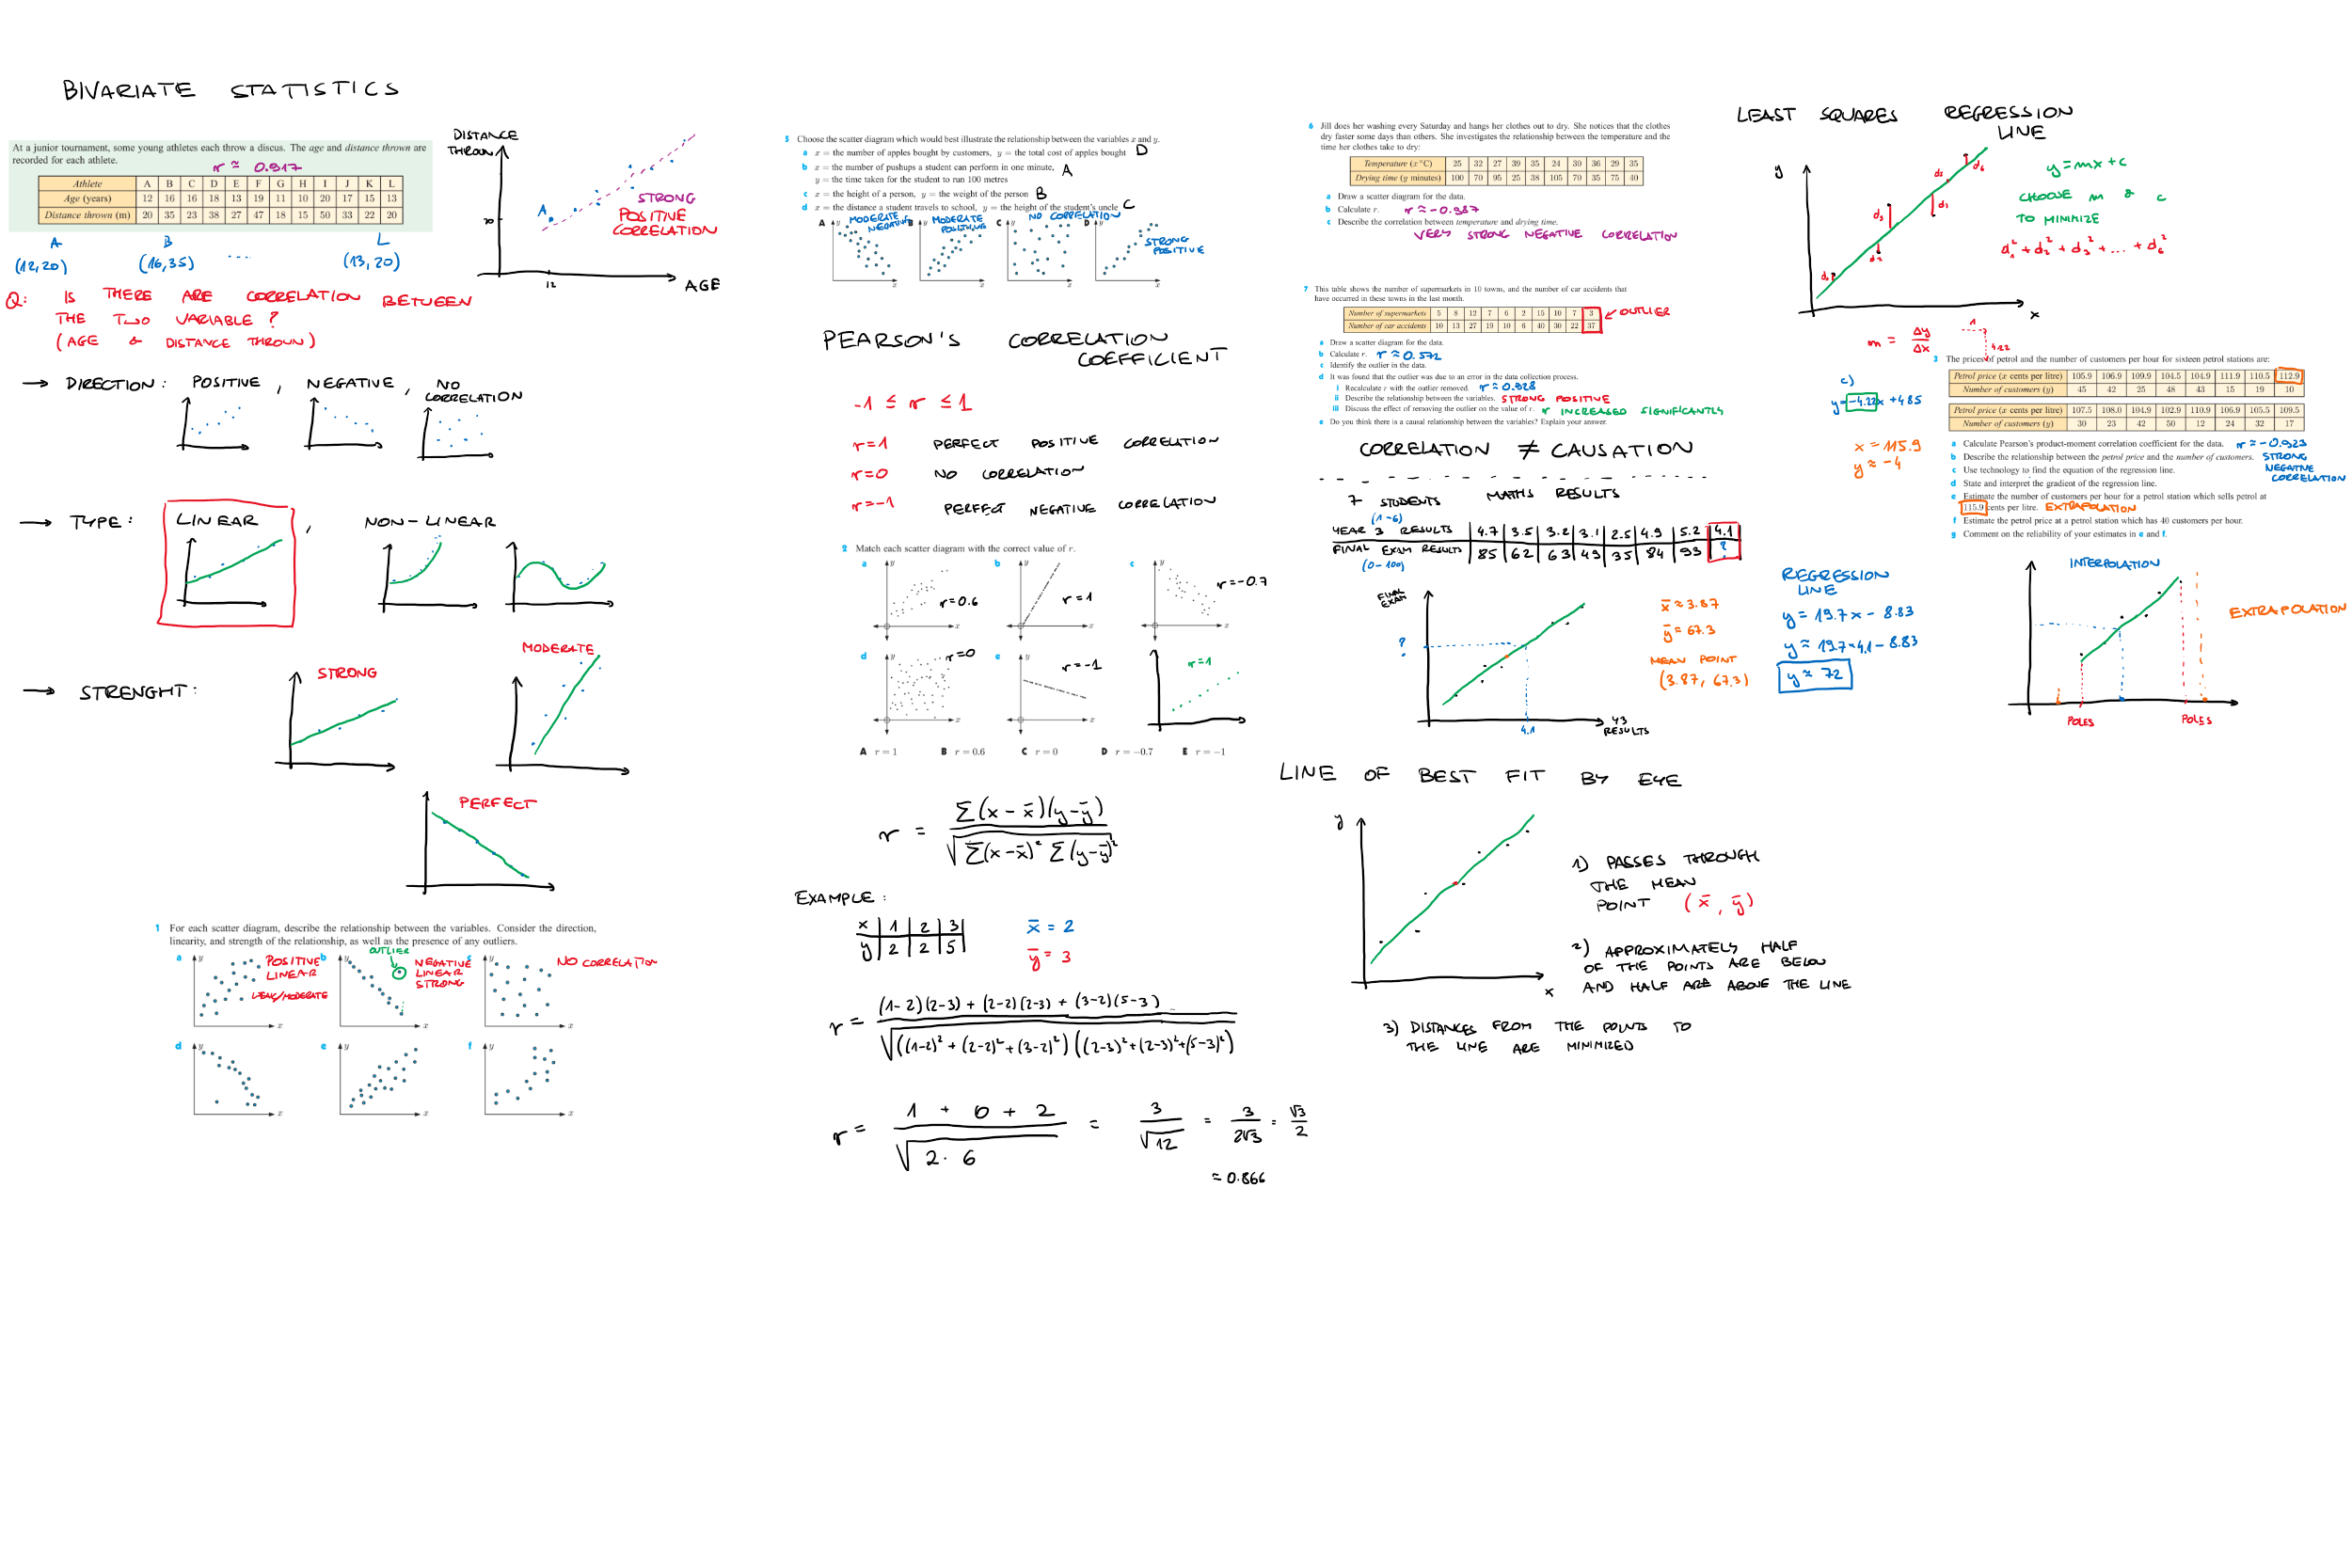 BIVARIATE STATISTICS
At a junior tournament, some young athletes each throw a discus. The age and distance thrown are
recorded for each athlete.
r ≈ 0.917
Athlete A B C D E F G H I J K L
Age (years) 12 16 16 18 13 19 11 10 20 17 15 13
Distance thrown (m) 20 35 23 38 27 47 18 15 50 33 22 20
A B L
(12,20) (16,35) .... (13,20)
DISTANCE
THROWN
A
20
12
AGE
STRONG
POSITIVE
CORRELATION
Q: IS THERE ARE CORRELATION BETWEEN
THE TWO VARIABLE ?
(AGE & DISTANCE THROWN)
→ DIRECTION: POSITIVE , NEGATIVE , NO
CORRELATION
→ TYPE: LINEAR , NON-LINEAR
→ STRENGHT: STRONG MODERATE
PERFECT
1 For each scatter diagram, describe the relationship between the variables. Consider the direction,
linearity, and strength of the relationship, as well as the presence of any outliers.
a y x POSITIVE
LINEAR
WEAK/MODERATE
b y x OUTLIER
NEGATIVE
LINEAR
STRONG
c y x NO CORRELATION
d y x
e y x
f y x
5 Choose the scatter diagram which would best illustrate the relationship between the variables x and y.
a x = the number of apples bought by customers, y = the total cost of apples bought D
b x = the number of pushups a student can perform in one minute, A
y = the time taken for the student to run 100 metres
c x = the height of a person, y = the weight of the person B
d x = the distance a student travels to school, y = the height of the student's uncle C
A y x MODERATE
NEGATIVE
B y x MODERATE
POSITIVE
C y x NO CORRELATION
D y x STRONG
POSITIVE
PEARSON'S CORRELATION
COEFFICIENT
-1 ≤ r ≤ 1
r=1 PERFECT POSITIVE CORRELATION
r=0 NO CORRELATION
r=-1 PERFECT NEGATIVE CORRELATION
2 Match each scatter diagram with the correct value of r.
a y x r=0.6
b y x r=1
c y x r=-0.7
d y x r=0
e y x r=-1
r=1
A r = 1 B r = 0.6 C r = 0 D r = −0.7 E r = −1
r = Σ(x - x̄)(y-ȳ) / √Σ(x-x̄)² Σ(y-ȳ)²
EXAMPLE:
x 1 2 3
y 2 2 5
x̄ = 2
ȳ = 3
r = (1-2)(2-3) + (2-2)(2-3) + (3-2)(5-3) / √((1-2)² + (2-2)² + (3-2)²)((2-3)²+(2-3)²+(5-3)²)
r = 1 + 0 + 2 / √2·6 = 3/√12 = 3/2√3 = √3/2
≈ 0.866
6 Jill does her washing every Saturday and hangs her clothes out to dry. She notices that the clothes
dry faster some days than others. She investigates the relationship between the temperature and the
time her clothes take to dry:
Temperature (x °C) 25 32 27 39 35 24 30 36 29 35
Drying time (y minutes) 100 70 95 25 38 105 70 35 75 40
a Draw a scatter diagram for the data.
b Calculate r. r ≈ -0.987
c Describe the correlation between temperature and drying time.
VERY STRONG NEGATIVE CORRELATION
7 This table shows the number of supermarkets in 10 towns, and the number of car accidents that
have occurred in these towns in the last month.
Number of supermarkets 5 8 12 7 6 2 15 10 7 3
Number of car accidents 10 13 27 19 10 6 40 30 22 37
OUTLIER
a Draw a scatter diagram for the data.
b Calculate r. r ≈ 0.572
c Identify the outlier in the data.
d It was found that the outlier was due to an error in the data collection process.
i Recalculate r with the outlier removed. r ≈ 0.928
ii Describe the relationship between the variables. STRONG POSITIVE
iii Discuss the effect of removing the outlier on the value of r. r INCREASED SIGNIFICANTLY
e Do you think there is a causal relationship between the variables? Explain your answer.
CORRELATION ≠ CAUSATION
7 STUDENTS MATHS RESULTS
(1-6)
YEAR 3 RESULTS 4.7 3.5 3.2 3.1 2.5 4.9 5.2 4.1
FINAL EXAM RESULTS 85 62 63 49 35 84 93 ?
(0-100)
FINAL
EXAM
?
4.1
Y3
RESULTS
x̄ ≈ 3.87
ȳ ≈ 67.3
MEAN POINT
(3.87, 67.3)
REGRESSION
LINE
y = 19.7x - 8.83
y ≈ 19.7·4.1 - 8.83
y ≈ 72
LINE OF BEST FIT BY EYE
y
x
1) PASSES THROUGH
THE MEAN
POINT (x̄, ȳ)
2) APPROXIMATELY HALF
OF THE POINTS ARE BELOW
AND HALF ARE ABOVE THE LINE
3) DISTANCES FROM THE POINTS TO
THE LINE ARE MINIMIZED
LEAST SQUARES REGRESSION
LINE
y
x
d₃ d₅ d₆
y=mx+c
CHOOSE m & c
TO MINIMIZE
d₁² + d₂² + d₃² + ... + d₆²
m = Δy/Δx
1
4.22
c)
y=-4.22x + 485
x = 115.9
y ≈ -4
3 The prices of petrol and the number of customers per hour for sixteen petrol stations are:
Petrol price (x cents per litre) 105.9 106.9 109.9 104.5 104.9 111.9 110.5 112.9
Number of customers (y) 45 42 25 48 43 15 19 10
Petrol price (x cents per litre) 107.5 108.0 104.9 102.9 110.9 106.9 105.5 109.5
Number of customers (y) 30 23 42 50 12 24 32 17
a Calculate Pearson's product-moment correlation coefficient for the data. r ≈ -0.923
b Describe the relationship between the petrol price and the number of customers. STRONG
NEGATIVE
CORRELATION
c Use technology to find the equation of the regression line.
d State and interpret the gradient of the regression line.
e Estimate the number of customers per hour for a petrol station which sells petrol at
115.9 cents per litre. EXTRAPOLATION
f Estimate the petrol price at a petrol station which has 40 customers per hour.
g Comment on the reliability of your estimates in e and f.
INTERPOLATION
EXTRAPOLATION
POLES POLES